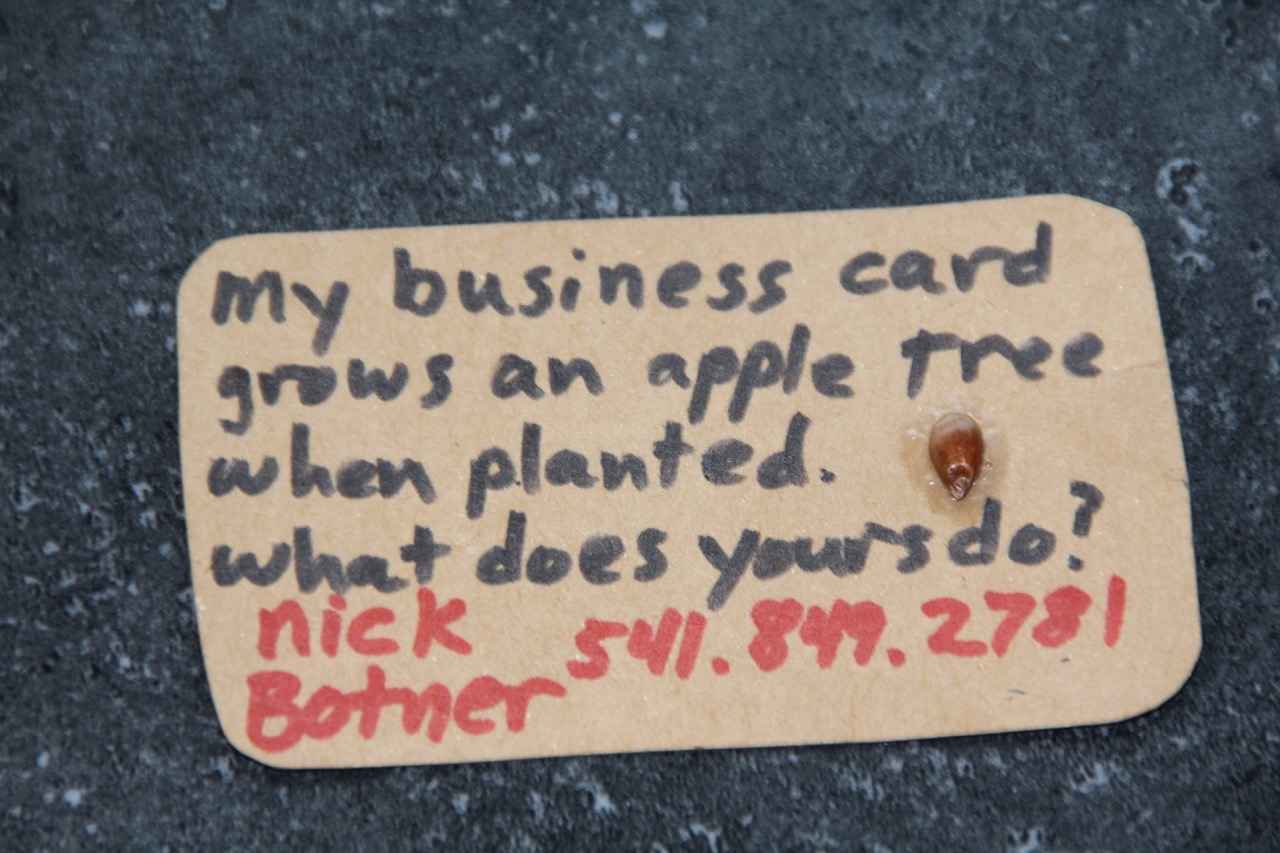 My business card
grows an apple tree
when planted.
what does yours do?
nick 541.849.2781
Botner